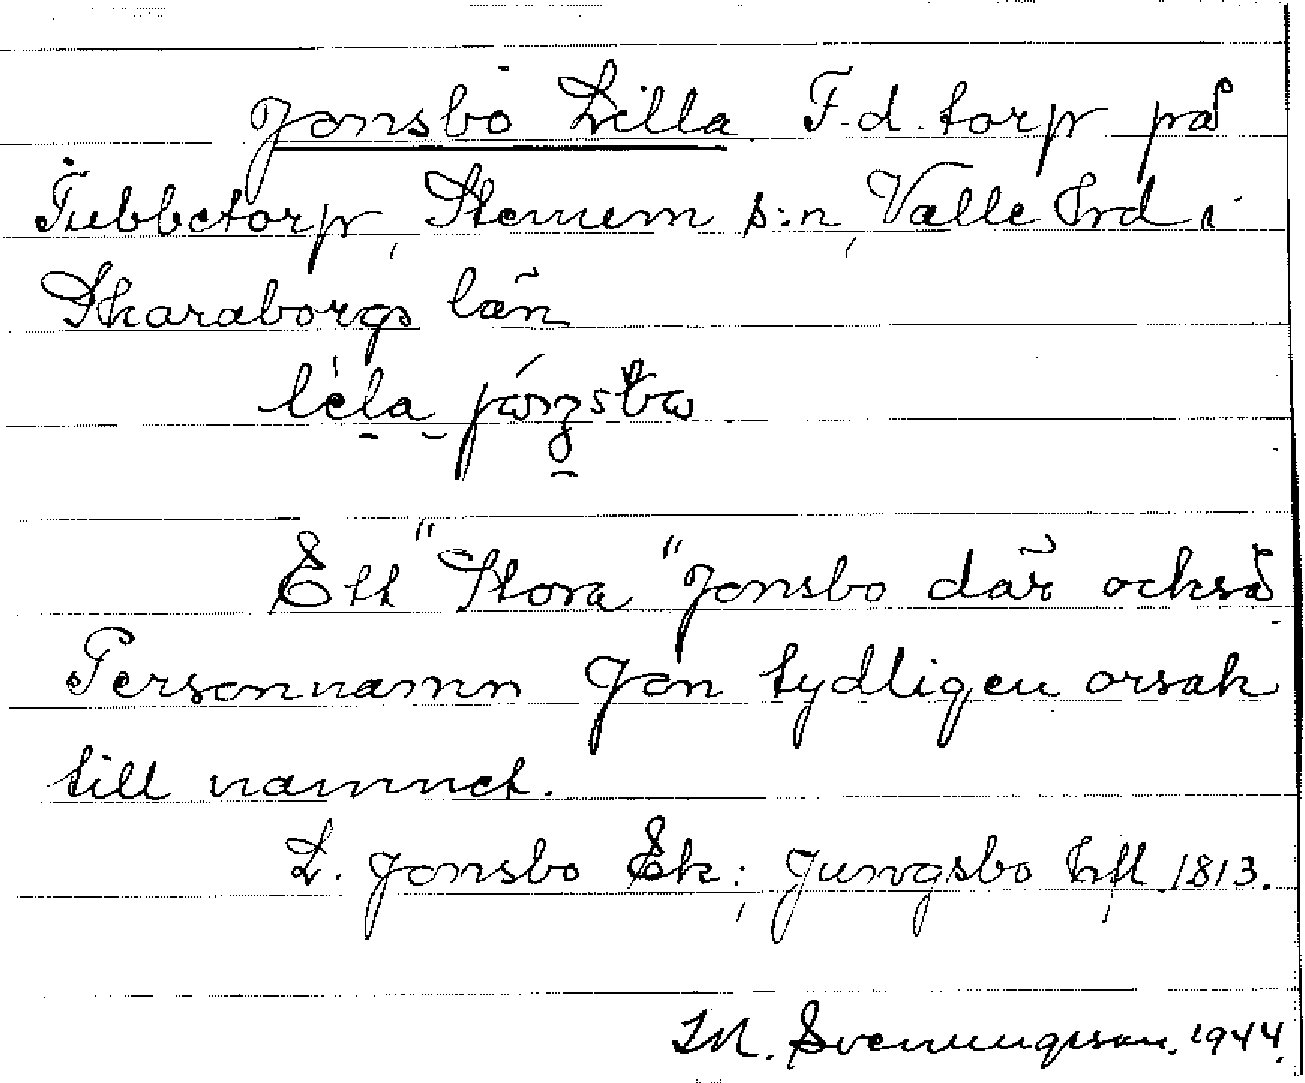 Jonsbo Lilla. F.d. torp på
Tubbetorp, Stenum s:n, Valle hrd i
Skaraborgs län
Ett "Stora" Jonsbo där också
Personnamn Jon tydligen orsak
till namnet.
L. Jonsbo Ek; Jungsbo hfl, 1813.
M. Svenungsson. 1944.